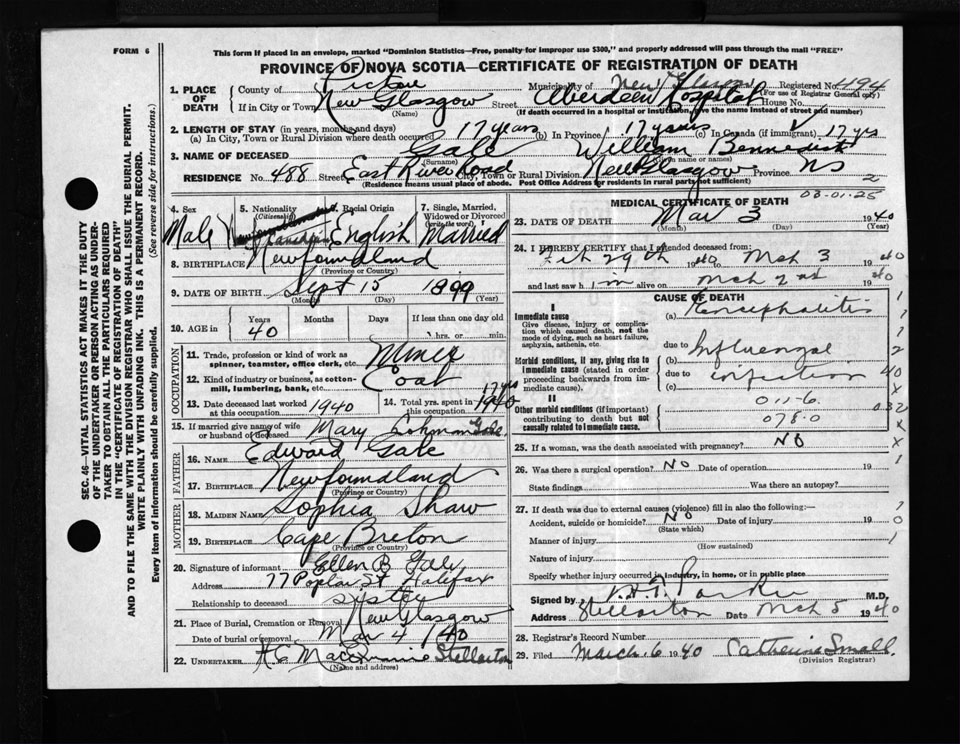 FORM 6
This form if placed in an envelope, marked "Dominion Statistics—Free, penalty for improper use $300," and properly addressed will pass through the mail "FREE"
PROVINCE OF NOVA SCOTIA—CERTIFICATE OF REGISTRATION OF DEATH
SEC. 46—VITAL STATISTICS ACT MAKES IT THE DUTY
OF THE UNDERTAKER OR PERSON ACTING AS UNDER-
TAKER TO OBTAIN ALL THE PARTICULARS REQUIRED
IN THE "CERTIFICATE OF REGISTRATION OF DEATH"
AND TO FILE THE SAME WITH THE DIVISION REGISTRAR WHO SHALL ISSUE THE BURIAL PERMIT.
WRITE PLAINLY WITH UNFADING INK. THIS IS A PERMANENT RECORD.
Every item of information should be carefully supplied. (See reverse side for instructions.)
1. PLACE OF DEATH County of Pictou Municipality of New Registered No. 1194
(For use of Registrar General only)
If in City or Town New Glasgow Street Aberdeen Hospital House No.
(Name) (If death occurred in a hospital or institution, give the name instead of street and number)
2. LENGTH OF STAY (in years, months and days)
(a) In City, Town or Rural Division where death occurred 17 years (b) In Province 17 years (c) In Canada (if immigrant) 17 yrs
3. NAME OF DECEASED Gale William Bennedict
(Surname) (Given name or names)
RESIDENCE No. 488 Street East River Road City, Town or Rural Division New Glasgow Province N S
(Residence means usual place of abode. Post Office Address for residents in rural parts not sufficient) 2
03.01.25
4. Sex Male
5. Nationality (Citizenship) Newfoundland
6. Racial Origin English
7. Single, Married, Widowed or Divorced (write the word) Married
8. BIRTHPLACE Newfoundland
(Province or Country)
9. DATE OF BIRTH Sept 15 1899
(Month) (Day) (Year)
10. AGE in Years Months Days If less than one day old
40 hrs. or min.
OCCUPATION
11. Trade, profession or kind of work as spinner, teamster, office clerk, etc. Miner
12. Kind of industry or business, as cotton-mill, lumbering, bank, etc. Coal
13. Date deceased last worked at this occupation 1940
14. Total yrs. spent in this occupation 17 yrs 1940
15. If married give name of wife or husband of deceased Mary Gale
FATHER
16. Name Edward Gale
17. Birthplace Newfoundland
(Province or Country)
MOTHER
18. Maiden Name Sophia Shaw
19. Birthplace Cape Breton
(Province or Country)
20. Signature of informant Ellen B Gale
Address 77 Poplar St Halifax
Relationship to deceased sister
21. Place of Burial, Cremation or Removal New Glasgow
Date of burial or removal Mar 4 / 40
22. UNDERTAKER Stellarton
(Name and address)
MEDICAL CERTIFICATE OF DEATH
23. DATE OF DEATH Mar 3 1940
(Month) (Day) (Year)
24. I HEREBY CERTIFY that I attended deceased from:
Feb 29th 1940 to Mch 3 1940
and last saw him alive on Mch 2nd 1940
CAUSE OF DEATH
I
Immediate cause (a) Encephalitis
Give disease, injury or complication which caused death, not the mode of dying, such as heart failure, asphyxia, asthenia, etc.
due to
Morbid conditions, if any, giving rise to immediate cause (stated in order proceeding backwards from immediate cause).
(b) Influenzal
due to infection
(c)
011-6
II
Other morbid conditions (if important) contributing to death but not causally related to immediate cause.
078.0
25. If a woman, was the death associated with pregnancy? NO
26. Was there a surgical operation? NO Date of operation 19
State findings Was there an autopsy?
27. If death was due to external causes (violence) fill in also the following:—
Accident, suicide or homicide? NO Date of injury 19
(State which)
Manner of injury
(How sustained)
Nature of injury
Specify whether injury occurred in industry, in home, or in public place
Signed by Parker M.D.
Address Stellarton Date Mch 5 1940
28. Registrar's Record Number
29. Filed March 6 1940 Catherine Small
(Division Registrar)